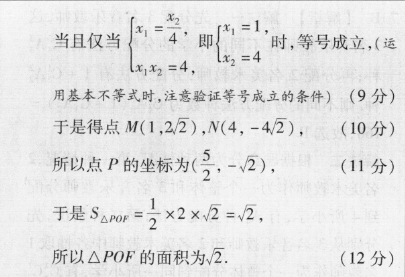 当且仅当{x₁=x₂/4, x₁x₂=4, 即{x₁=1, x₂=4 时,等号成立,(运
用基本不等式时,注意验证等号成立的条件) (9分)
于是得点 M(1,2√2),N(4,-4√2), (10分)
所以点 P 的坐标为(5/2,-√2), (11分)
于是 S△POF=1/2×2×√2=√2,
所以△POF 的面积为√2. (12分)